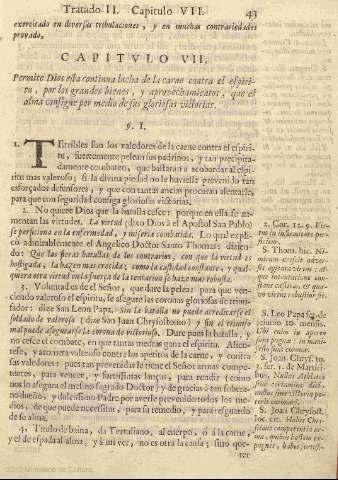 Tratado II. Capitulo VII. 43
exercitado en diversas tribulaciones, y en muchas contrariedades
provado.
CAPITULO VII.
Permite Dios esta continua lucha de la carne contra el espiri-
tu, por los grandes bienes, y aprovechamientos, que el
alma consigue por medio de sus gloriosas victorias.
§. I.
1. TErribles son los valedores de la carne contra el espiri-
tu, fuertemente pelean sus padrinos, y tan precipita-
damente combaten, que bastaran a acobardar al espiri-
tu mas valeroso; si la divina piedad no le huviesse prevenido tan
esforçados defensores, y que con tantas ansias procuran alentarle,
para que con seguridad consiga gloriosas victorias.
2. No quiere Dios que la batalla cesse: porque en ella se au-
mentan las virtudes. La virtud (dixo Dios à el Apostol San Pablo)
se perficiona en la enfermedad, y miseria combatida. Lo qual expli-
cò admirablemente el Angelico Doctor Santo Thomas: dizien-
do: Que las fieras batallas de los contrarios, con que la virtud es
hostigada, la hazen mas crecida; como la castidad constante, y qual-
quiera otra virtud en la fuerça de la tentacion se haze mas robusta.
3. Voluntad es el Señor, que dure la pelea: para que ven-
ciendo valeroso el espiritu, se assegure las coronas gloriosas de triun-
fador: dize San Leon Papa. Sin la batalla no puede acreditarse el
soldado de valeroso (dize San Juan Chrysostomo) y sin el triunfo
mal puede assegurarse la corona de victorioso. Dure pues la batalla, y
no cesse el combate, en que tantas medras gana el espiritu. Alien-
tese, y acometa valeroso contra los apetitos de la carne, y contra
sus valedores: pues tan prevenidos le tiene el Señor armas compe-
tentes, para vencer, y fortissimas lanças, para rendir (como
nos lo assegura el mesmo sagrado Doctor) y de gracias à tan sobera-
no dueño; y dulcissimo Padre por averle prevenido todos los me-
dios, de que puede necessitar, para su remedio, y para resguardo
de su alma.
4. Titulo de baina, da Tertuliano, al cuerpo, ò à la carne,
y el de espada al alma, y à mi ver, no es otra la causa; sino que-
rer
2. Cor. 12. 9. Vir-
tus in infirmitate per-
ficitur.
S. Thom. hic.
S. Leo Papa ser. de
jejunio 10. mensis.
S. Joan. Chrysost. to.
3. ser. 1. de Martiri-
bus.
S. Joan. Chrysost.
loc. cit.
©2010 Ministerio de Cultura